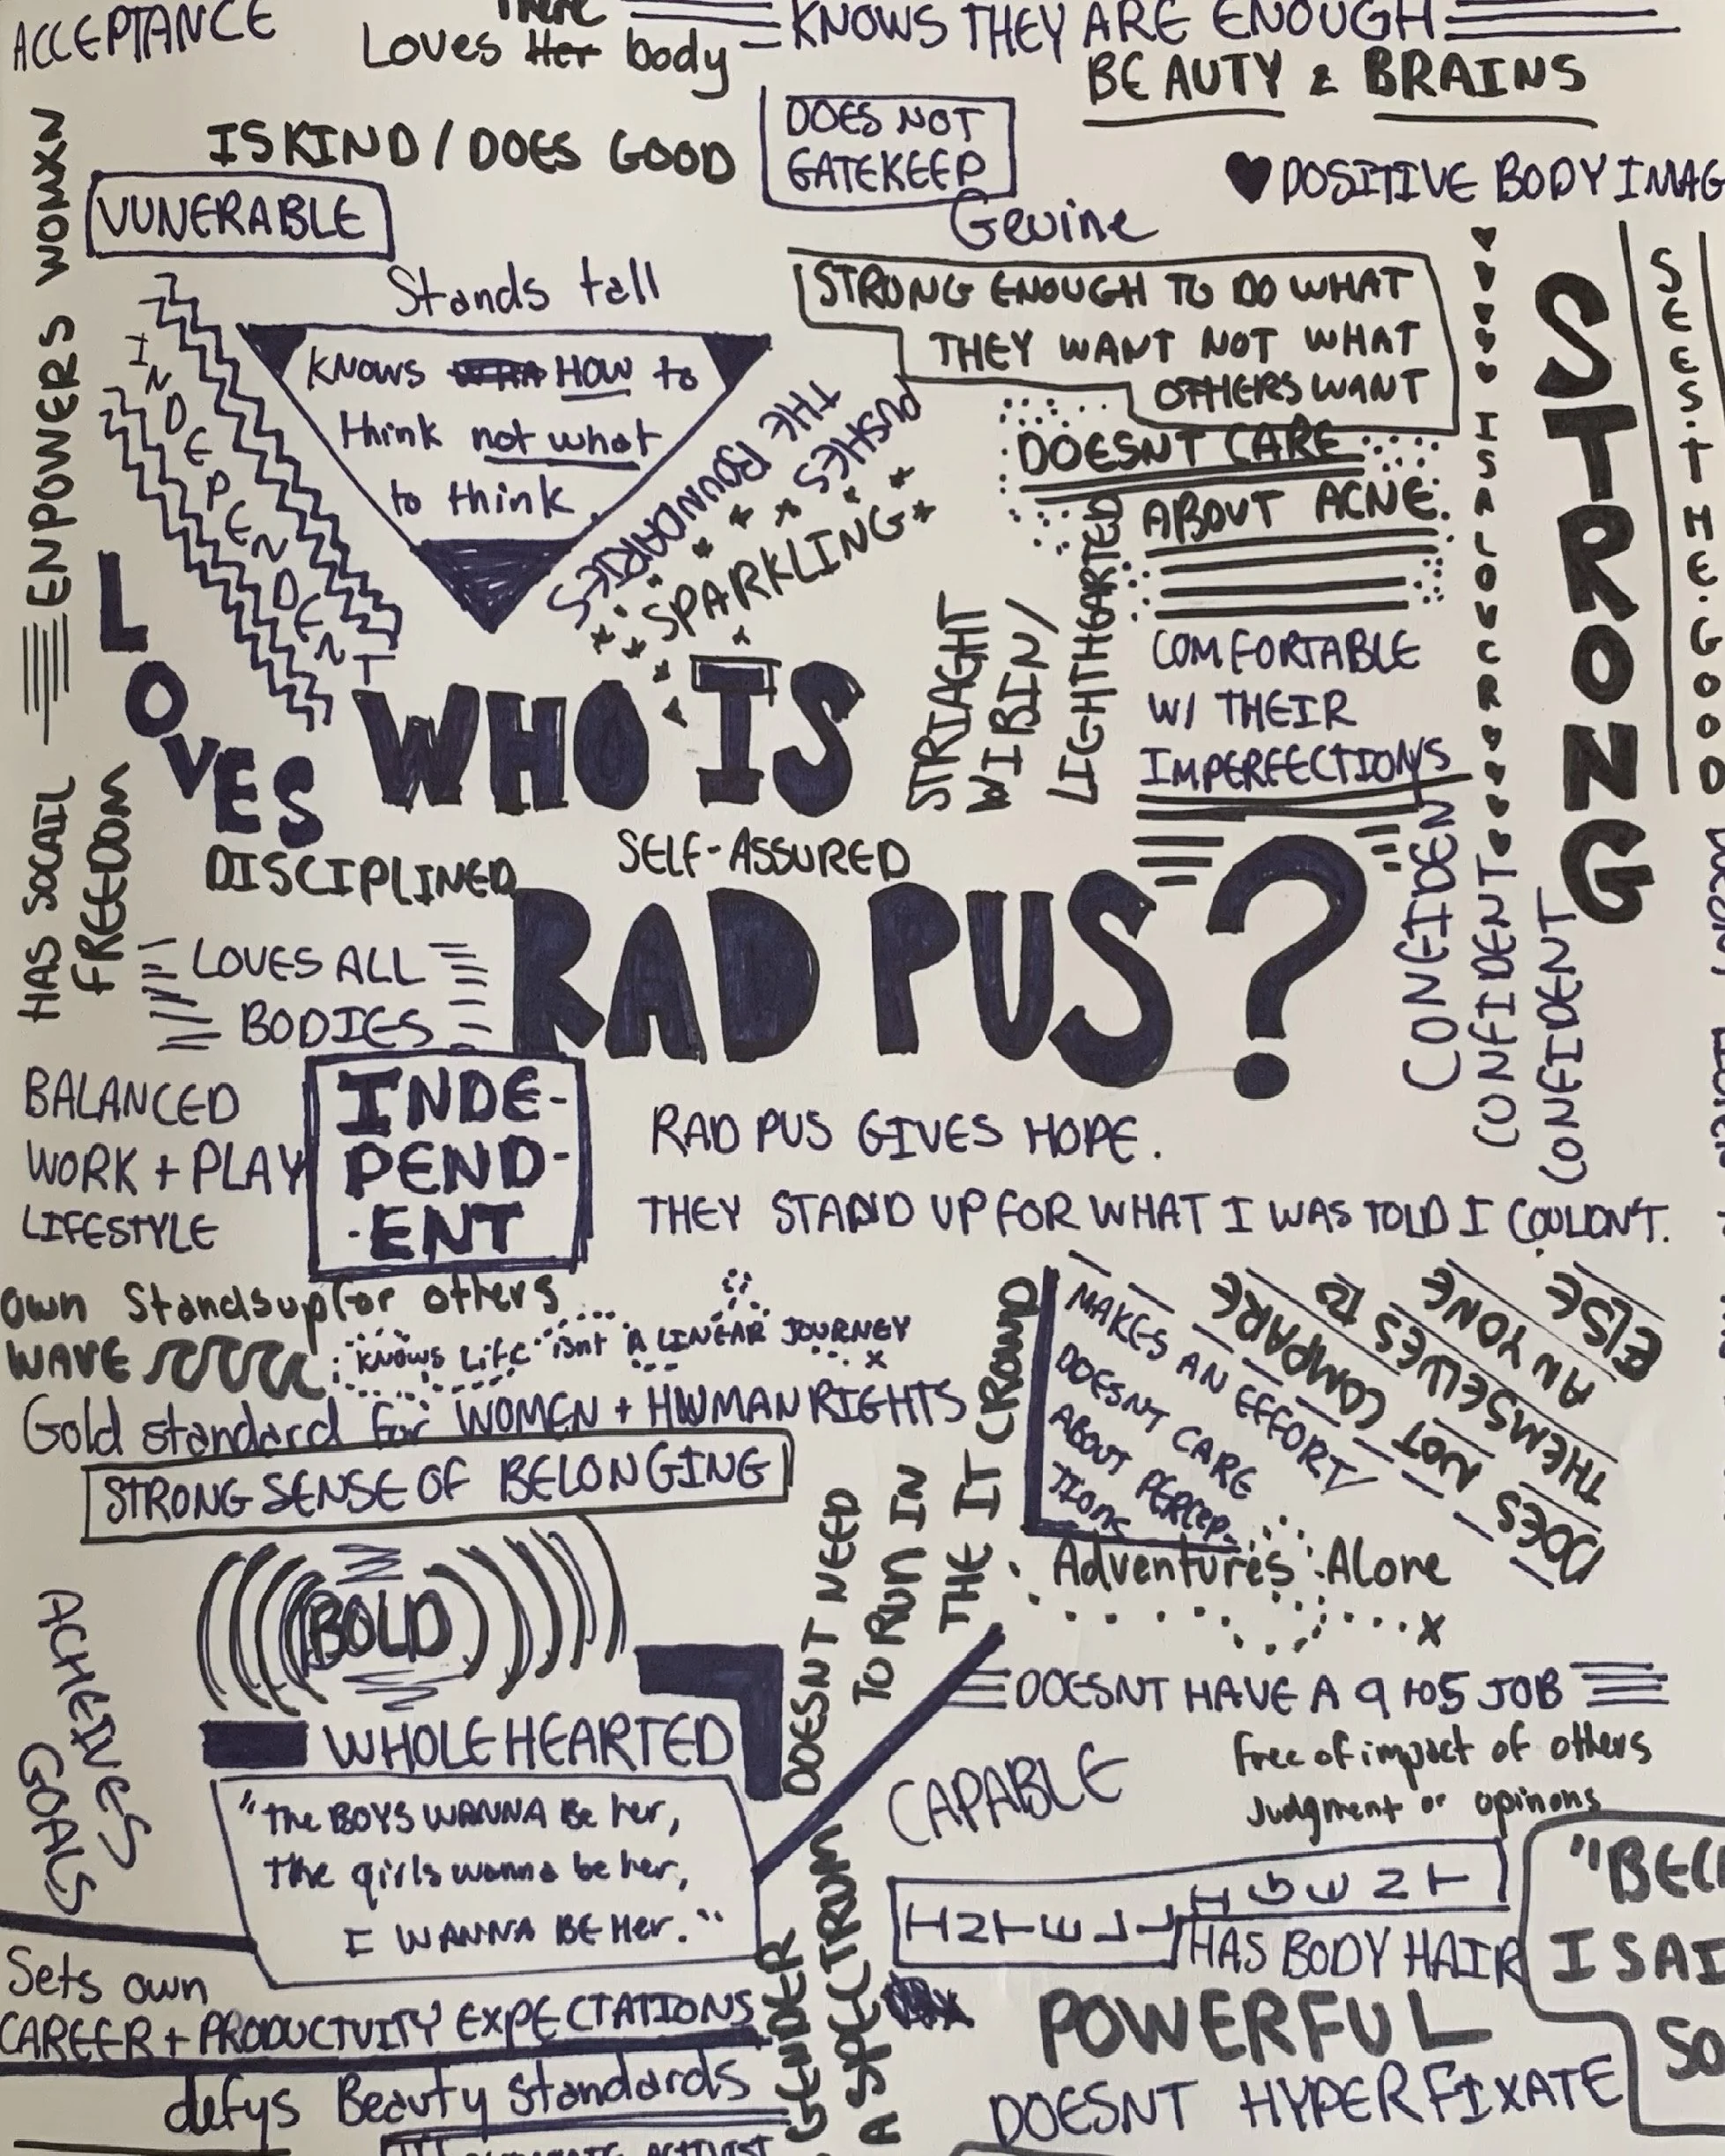 ACCEPTANCE
There
Loves Her body
KNOWS THEY ARE ENOUGH
BEAUTY & BRAINS
IS KIND / DOES GOOD
DOES NOT
GATEKEEP
♥ POSITIVE BODY IMAG
ENPOWERS WOMXN
VUNERABLE
Geuine
Stands tall
STRONG ENOUGH TO DO WHAT
THEY WANT NOT WHAT
OTHERS WANT
INDEPENDENT
KNOWS HOW to
think not what
to think.
PUSHES
THE BOUNDARIES
SPARKLING
DOESNT CARE
ABOUT ACNE.
IS A LOVER
STRONG
SEES.THE.GOOD
LOVES
STRIAGHT
WIRIN/
LIGHTHEARTED
COMFORTABLE
W/ THEIR
IMPERFECTIONS
WHO IS
RAD PUS?
HAS SOCAIL
FREEDOM
DISCIPLINED
SELF-ASSURED
LOVES ALL
BODIES
CONFIDEN
CONFIDENT
CONFIDENT
BALANCED
WORK + PLAY
LIFESTYLE
INDE-
PEND-
-ENT
RAD PUS GIVES HOPE.
THEY STAND UP FOR WHAT I WAS TOLD I COULDN'T.
own
WAVE
Stands up for others
KNOWS Life isnt A LINEAR JOURNEY
x
Gold standard for WOMEN + HUMAN RIGHTS
STRONG SENSE OF BELONGING
DOESNT NEED
TO RUN IN
THE IT CROWD
MAKES AN EFFORT/
DOESNT CARE
ABOUT PERCEP-
TIONS
DOES NOT COMPARE
THEMSELVES TO
ANYONE
ELSE
Adventures Alone
x
BOLD
ACHEIVES
GOALS
WHOLEHEARTED
DOESNT HAVE A 9 to 5 JOB
free of impact of others
Judgment or opinons
CAPABLE
"The BOYS WANNA Be her,
The girls wanna be her,
I WANNA BE Her."
INTELLIGENT
HAS BODY HAIR
"BEC
I SAI
SO
Sets own
CAREER + PRODUCTVITY EXPECTATIONS
GENDER
A SPECTRUM
POWERFUL
DOESNT HYPERFIXATE
defys Beauty standards
ACTIVIST